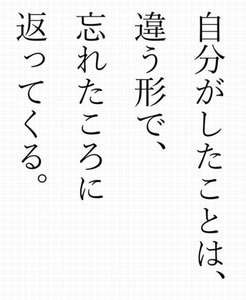 自分がしたことは、
違う形で、
忘れたころに
返ってくる。